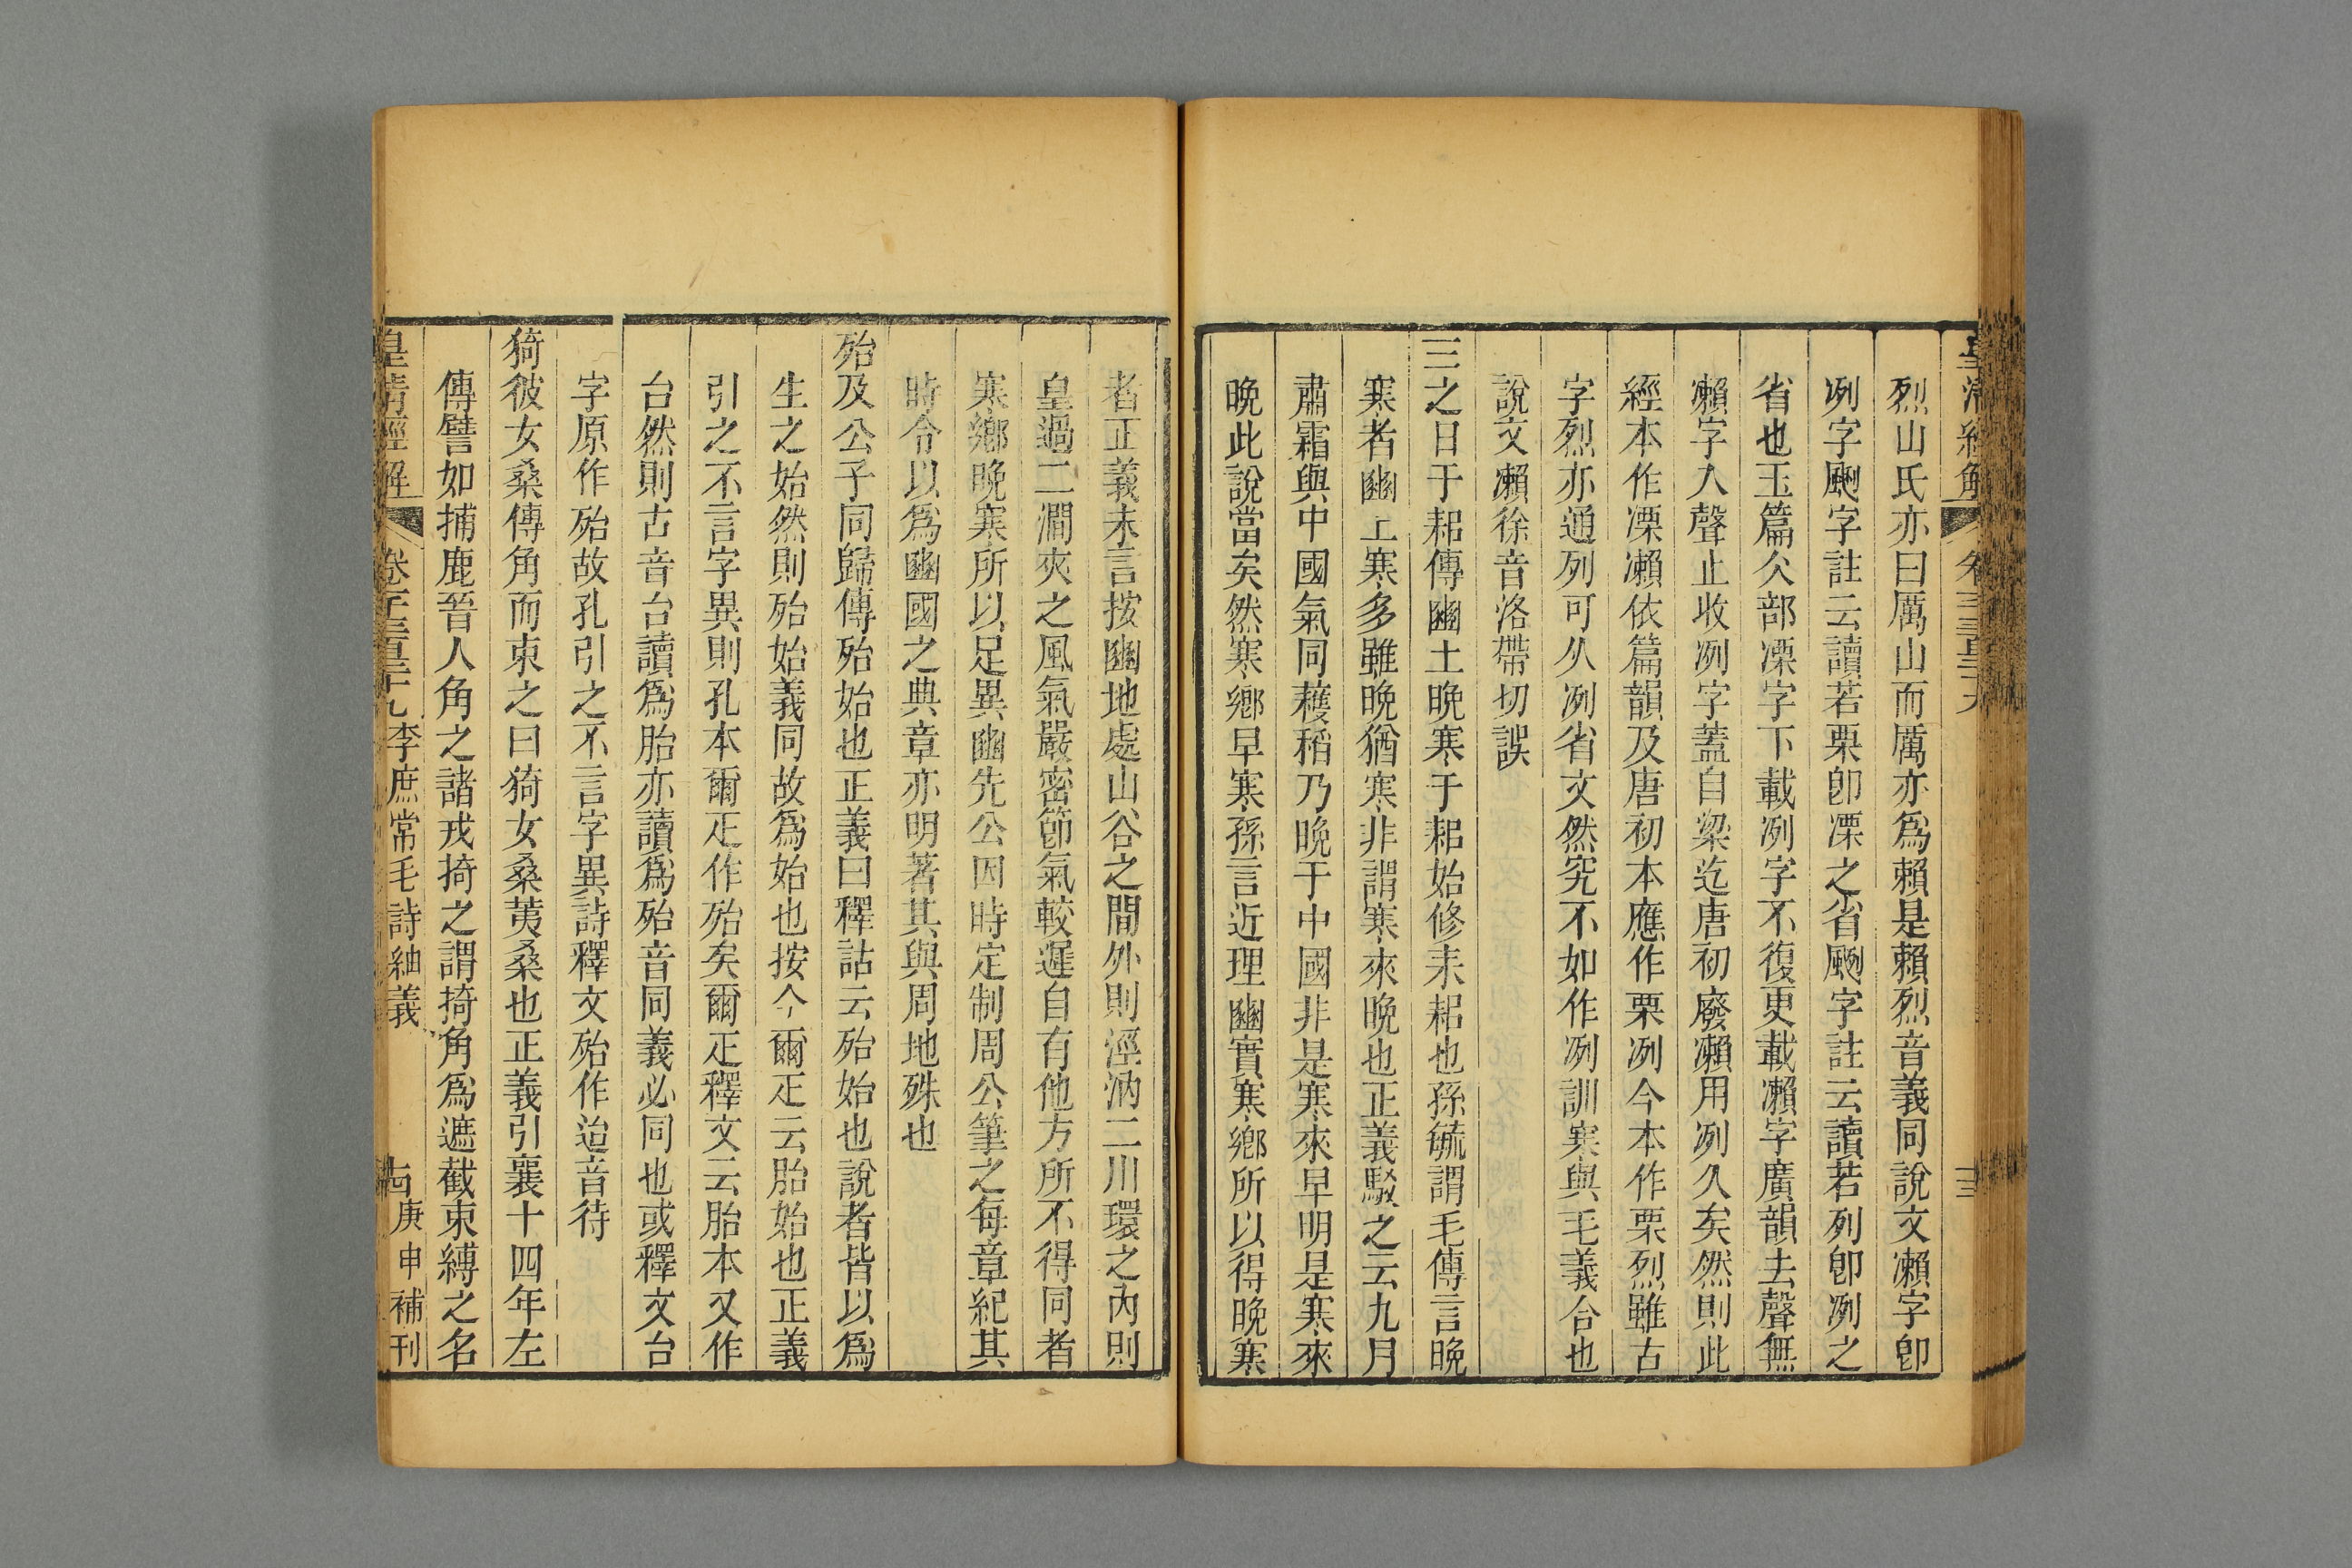 烈山氏亦曰厲山而厲亦爲賴是賴烈音義同說文瀨字卽
冽字颲字註云讀若栗卽凓之省颲字註云讀若列卽冽之
省也玉篇仌部凓字下載冽字不復更載瀨字廣韻去聲無
瀨字入聲止收冽字蓋自梁迄唐初廢瀨用冽久矣然則此
經本作凓瀨依篇韻及唐初本應作栗冽今本作栗烈雖古
字烈亦通列可从冽省文然究不如作冽訓寒與毛義合也
說文瀨徐音洛帶切誤
三之日于耜傳豳土晚寒于耜始修耒耜也孫毓謂毛傳言晚
寒者豳土寒多雖晚猶寒非謂寒來晚也正義駁之云九月
肅霜與中國氣同穫稻乃晚于中國非是寒來早明是寒來
晚此說當矣然寒鄉早寒孫言近理豳實寒鄉所以得晚寒
者正義未言按豳地處山谷之間外則涇汭二川環之內則
皇過二澗夾之風氣嚴密節氣較遲自有他方所不得同者
寒鄉晚寒所以足異豳先公因時定制周公筆之每章紀其
時令以爲豳國之典章亦明著其與周地殊也
殆及公子同歸傳殆始也正義曰釋詁云殆始也說者皆以爲
生之始然則殆始義同故爲始也按今爾疋云胎始也正義
引之不言字異則孔本爾疋作殆矣爾疋釋文云胎本又作
台然則古音台讀爲胎亦讀爲殆音同義必同也或釋文台
字原作殆故孔引之不言字異詩釋文殆作迨音待
猗彼女桑傳角而束之曰猗女桑荑桑也正義引襄十四年左
傳譬如捕鹿晉人角之諸戎掎之謂掎角爲遮截束縛之名
皇清經解 卷三百三十九 李庶常毛詩紬義 古 庚申補刊